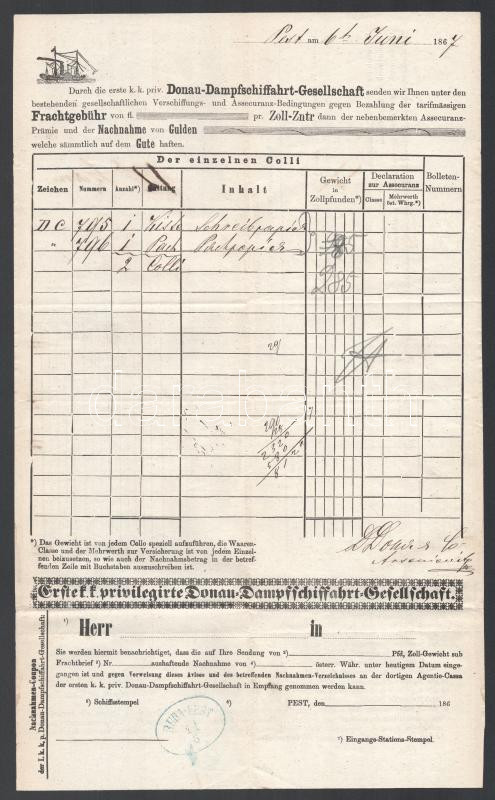 Pest am 6t Juni 1867
Durch die erste k. k. priv. Donau-Dampfschiffahrt-Gesellschaft senden wir Ihnen unter den
bestehenden gesellschaftlichen Verschiffungs- und Assecuranz-Bedingungen gegen Bezahlung der tarifmässigen
Frachtgebühr von fl. pr. Zoll-Zntr dann der nebenbemerkten Assecuranz-
Prämie und der Nachnahme von Gulden
welche sämmtlich auf dem Gute haften.
Der einzelnen Colli
Zeichen Nummern Anzahl*) Gattung Inhalt Gewicht in Zollpfunden*) Declaration zur Assecuranz Classe Mehrwerth öst. Währg.*) Bolleten-Nummern
DC 795 1 Kiste Schreibpapier
" 796 1 Pack Packpapier
2 Colli 285
29
*) Das Gewicht ist von jedem Collo speziell aufzuführen, die Waaren-
Classe und der Mehrwerth zur Versicherung ist von jedem Einzel-
nen beizusetzen, so wie auch der Nachnahmebetrag in der betref-
fenden Zeile mit Buchstaben auszuschreiben ist.
Erste k. k. privilegirte Donau-Dampfschiffahrt-Gesellschaft.
Nachnahmen-Coupon
der I. k. k. p. Donau-Dampfschiffahrt-Gesellschaft.
¹) Herr in
Sie werden hiermit benachrichtiget, dass die auf Ihre Sendung von ²) Pfd, Zoll-Gewicht sub
Frachtbrief ³) Nr. aushaftende Nachnahme von ⁴) österr. Währ. unter heutigem Datum einge-
gangen ist und gegen Vorweisung dieses Avises und des betreffenden Nachnahmen-Verzeichnisses an der dortigen Agentie-Cassa
der ersten k. k. priv. Donau-Dampfschiffahrt-Gesellschaft in Empfang genommen werden kann.
⁵) Schiffsstempel ⁶) PEST, den 186
⁷) Eingangs-Stations-Stempel.